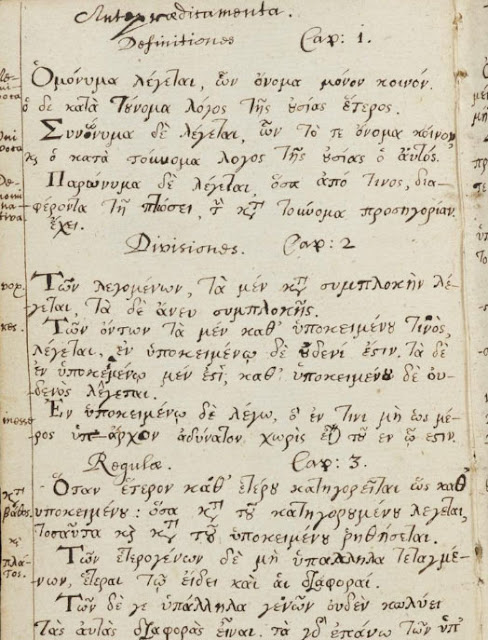 Antepraedicamenta.
Definitiones Cap: 1.
Ὁμόνυμα λέγεται, ὧν ὄνομα μόνον κοινόν.
ὁ δε κατὰ τοὔνομα λόγος τῆς ȣσίας ἕτερος.
Συνώνυμα δὲ λέγεται, ὧν τό τε ὄνομα κοινον,
κς ὁ κατὰ τοὔνομα λογος τῆς ȣσίας ὁ αὐτός.
Παρώνυμα δὲ λέγεται, ὅσα ἀπό τινος, δια-
φέροντα τῇ πτώσει, τ κτ τοὔνομα προσηγορίαν
ἔχει.
Divisiones. Cap: 2
Τῶν λεγομένων, τὰ μέν κτ συμπλοκὴν λέ-
γεται, τὰ δὲ ἄνευ συμπλοκῆς.
Τῶν ὄντων τὰ μέν καθ' ὑποκειμένȣ τινὸς,
λέγεται, ἐν ὑποκειμένῳ δὲ ȣδενί ἐστιν. τὰ δὲ
ἐν ὑποκειμένῳ μέν ἐστὶ, καθ' ὑποκειμένȣ δὲ οὐ-
δενὸς λέγεται.
Ἐν ὑποκειμένῳ δὲ λέγω, ὃ ἐν τινι μὴ ὡς μέ-
ρος ὑπάρχον ἀδύνατον χωρὶς εἶ τοῦ ἐν ᾧ ἐστιν.
Regulæ. Cap: 3.
Ὅταν ἕτερον καθ' ἑτέρȣ κατηγορεῖται ὡς καθ'
ὑποκειμένȣ: ὅσα κτ τοῦ κατηγορȣμένȣ λεγεται,
τοσαῦτα κς κτ τοῦ ὑποκειμένȣ ῥηθήσεται.
Τῶν ἑτερογένων δὲ μὴ ὑπάλληλα τεταγμέ-
νων, ἕτεραι τῷ εἴδει καὶ αἱ διαφοραί.
Τῶν δέ γε ὑπάλληλα γενῶν ουδέν κωλύει
τὰς αὐτὰς διαφορὰς εἶναι. τὰ γδ ἐπάνω τῶν ὑπ'